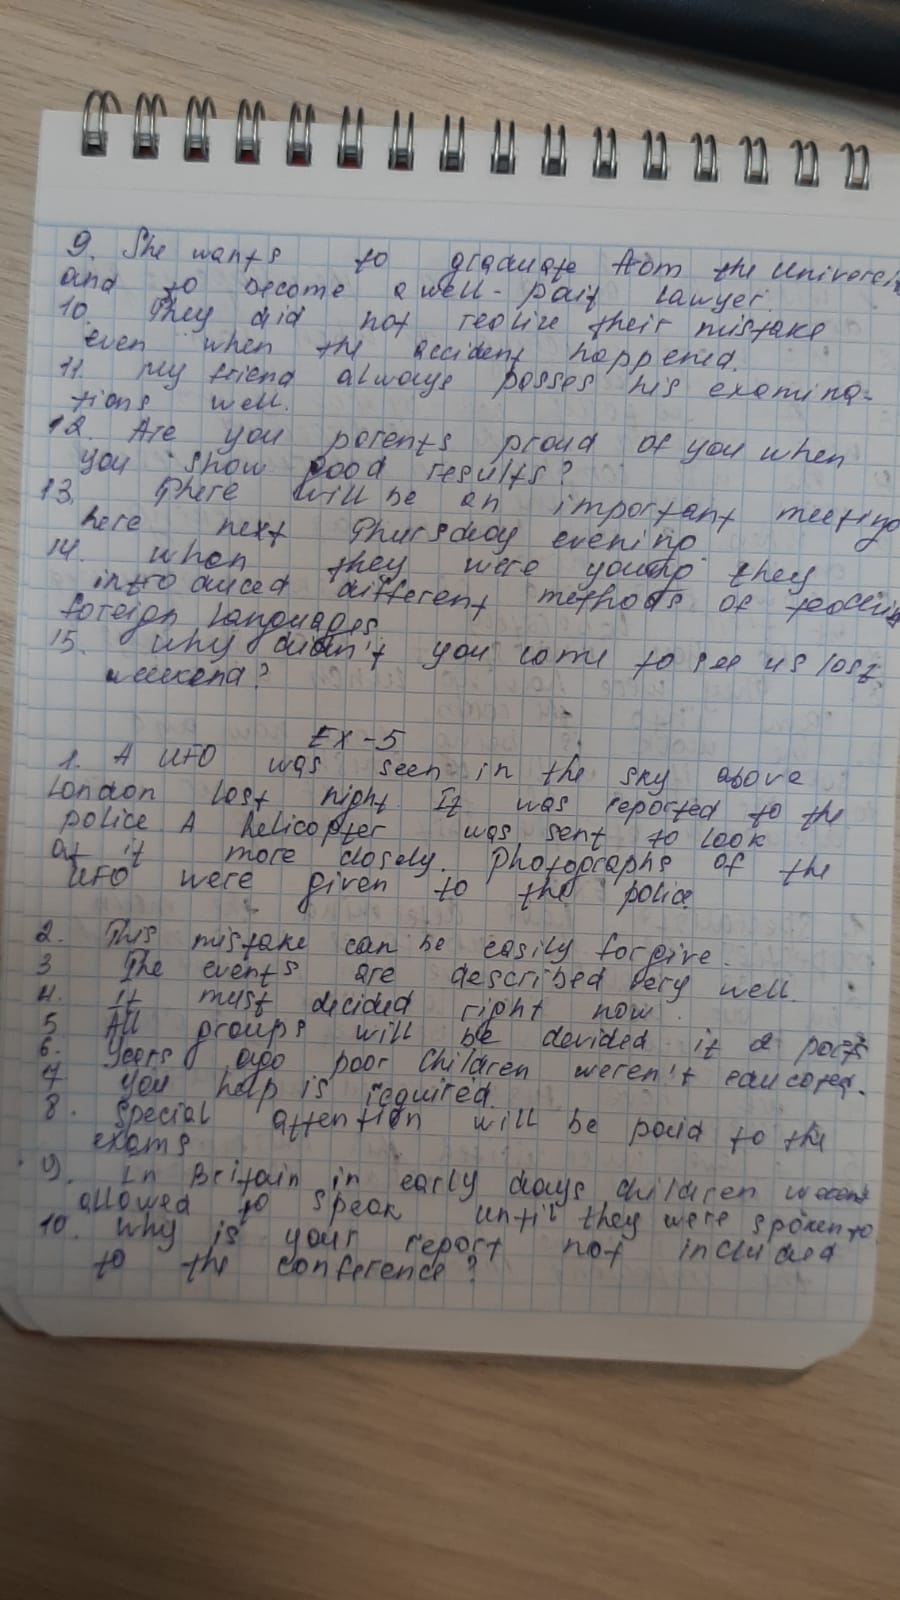 9. She wants to graduate from the Universi
and to become a well-paid lawyer.
10. They did not realize their mistake
even when the accident happened.
11. My friend always passes his examina-
tions well.
12. Are you parents proud of you when
you show good results?
13. There will be an important meeting
here next Thursday evening
14. when they were young they
introduced different methods of teachin
foreign languages
15. Why didn't you come to see us last
weekend?
Ex-5
1. A UFO was seen in the sky above
London last night. It was reported to the
police A helicopter was sent to look
at it more closely. Photographs of the
UFO were given to the police.
2. This mistake can be easily forgive.
3 The events are described very well.
4. It must decided right now.
5 All groups will be devided it 2 parts
6. Years ago poor children weren't educated.
7 You help is required.
8. Special attention will be paid to the
exams
9. In Britain in early days children
allowed to speak until they were spoken to
10. Why is your report not included
to the conference?